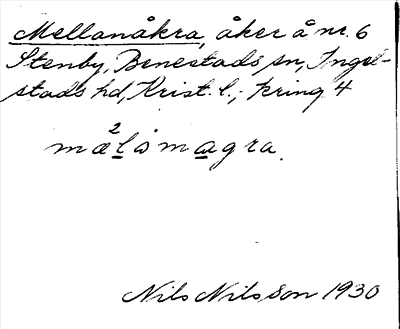 Mellanåkra, åker å nr. 6
Stenby, Benestads sn, Ingel-
stads hd, Krist. l.; kring 4
mæ²låmagra.
Nils Nilsson 1930